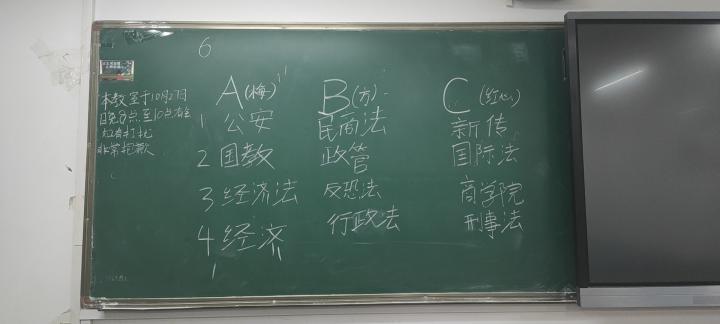 6
本教室于10月27日
日晚8点至10点有会
如有打扰
非常抱歉
A(梅) B(方) C(红心)
1 公安 民商法 新传
2 国教 政管 国际法
3 经济法 反恐法 商学院
4 经济 行政法 刑事法